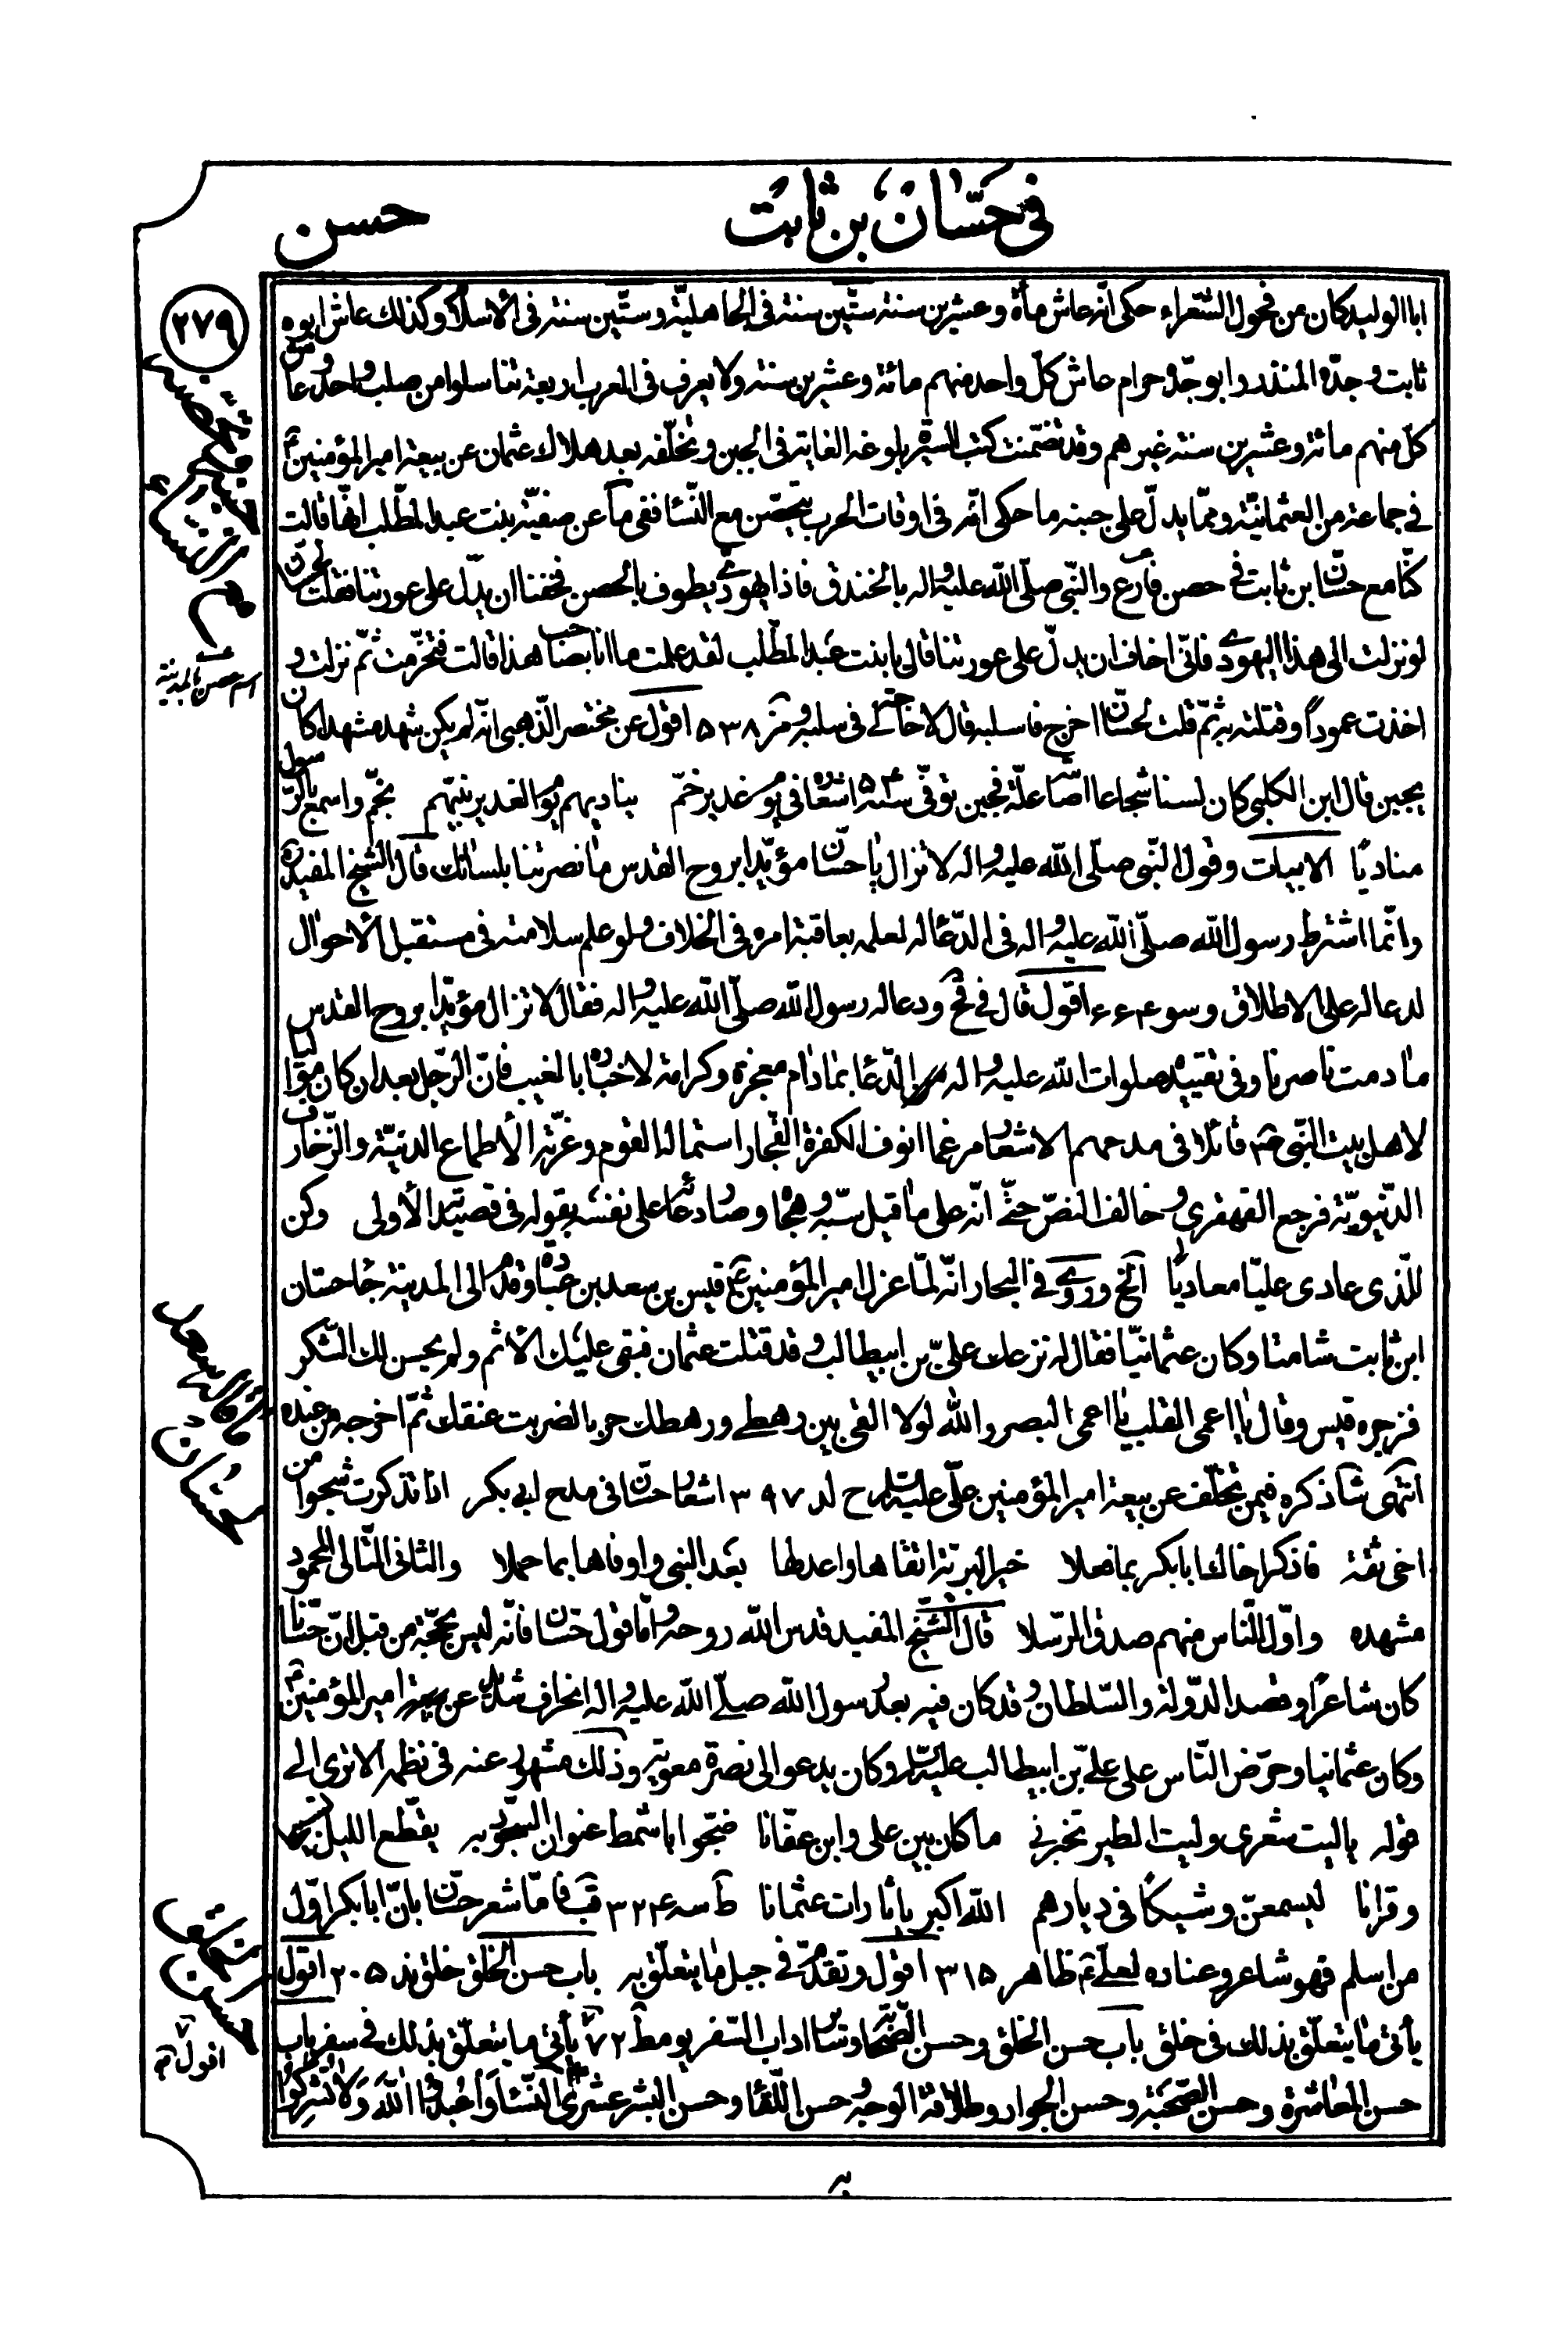 في حسّان بن ثابت
حسن
٢٧٩
ابا الوليد كان من فحول الشّعراء حكى انّه عاش مأة وعشرين سنة ستّين سنة في الجاهليّة وستّين سنة في الاسلام وكذلك عاش ابوه
ثابت وجدّه المنذر وابو جدّه حرام عاش كلّ واحد منهم مائة وعشرين سنة ولا يعرف في العرب اربعة تناسلوا من صلب واحد وعاش
كلّ منهم مائة وعشرين سنة غيرهم وقد تضمّنت كتب السير بلوغه الغاية في الجبن وتخلّفه بعد هلاك عثمان عن بيعة امير المؤمنين ع
في جماعة من العثمانيّة وممّا يدلّ على جبنه ما حكى انّه في اوقات الحرب يتحصّن مع النّساء ففي ما عن صفيّة بنت عبد المطّلب انّها قالت
كنّا مع حسّان بن ثابت في حصن فارع والنّبي صلّى الله عليه واله بالخندق فاذا يهودي يطوف بالحصن فخفنا ان يدلّ على عورتنا فقلت لحسّان
لو نزلت الى هذا اليهودي فانّي اخاف ان يدلّ على عورتنا قال يا بنت عبد المطّلب لقد علمت ما انا بصاحب هذا قالت فتحزّمت ثمّ نزلت و
اخذت عموداً وقتلته به ثمّ قلت لحسّان اخرج فاسلبه قال لا حاجة لي في سلبه و مز ٥٣٨ اقول عن مختصر الذّهبي انّه لم يكن شهد مشهدا كان
يجبن قال ابن الكلبي كان لسنا شجاعا اصابته علّة فجبن توفّى سنة ٥٤ اشعاره في يوم غدير خمّ يناديهم يوم الغدير نبيّهم بخمّ واسمع بالرّسول
مناديًا الابيات وقول النّبي صلّى الله عليه واله لا تزال يا حسّان مؤيّدا بروح القدس ما نصرتنا بلسانك قال الشيخ المفيد ره
وانّما اشترط رسول الله صلّى الله عليه واله في الدّعاء له لعلمه بعاقبة امره في الخلاف ولو علم سلامته في مستقبل الاحوال
لدعا له على الاطلاق وسو ٦٦٤ اقول قال في ودعا له رسول الله صلّى الله عليه واله فقال لا تزال مؤيّدا بروح القدس
ما دمت ناصرنا وفي تقييده صلوات الله عليه واله الدّعاء بما دام معجزة وكرامة لاخباره بالغيب فانّ الرّجل بعد ان كان مواليا
لاهل بيت النّبي ص قائلا في مدحهم الاشعار مرغما انوف الكفرة الفجّار استماله القوم وغرّته الاطماع الدنيّة والزّخارف
الدّنيويّة فرجع القهقرى وخالف النصّ حتّى انّه على ما قيل سبّه وهجاه وصار داعيا على نفسه بقوله في قصيدته الأولى وكن
للّذي عادى عليّا معاديًا الخ وروى في البحار انّه لمّا عزل امير المؤمنين ع قيس بن سعد بن عبادة وقدم الى المدينة جاء حسّان
ابن ثابت شامتا وكان عثمانيّا فقال له نزعك عليّ بن ابيطالب وقد قتلت عثمان فبقى عليك الاثم ولم يحسن لك الشكر
فزجره قيس وقال يا اعمى القلب يا اعمى البصر والله لولا القى بين رهطي ورهطك حربا لضربت عنقك ثمّ اخرجه من عنده
انتهى ذكره فيمن تخلّف عن بيعة امير المؤمنين عليّ عليه السلام ح لد ٣٩٧ اشعار حسّان في مدح ابي بكر اذا تذكرت شجوا من
اخي ثقة فاذكر اخاك ابابكر بما فعلا خير البريّة اتقاها واعدلها بعد النبي واوفاها بما حملا والثاني التّالي المحمود
مشهده واوّل النّاس منهم صدق الرّسلا قال الشيخ المفيد قدس الله روحه وامّا قول حسّان فانّه ليس بحجّة من قبل انّ حسّانا
كان شاعرًا وقصد الدّولة والسّلطان وقد كان فيه بعد رسول الله صلّى الله عليه واله انحراف شديد عن امير المؤمنين ع
وكان عثمانيا وحرّض النّاس على عليّ بن ابيطالب عليه السلام وكان يدعو الى نصرة معوية وذلك مشهور عنه في نظمه الا ترى الى
قوله يا ليت شعري وليت الطير تخبرني ما كان بين علي وابن عفّانا ضحّوا باشمط عنوان السجود به يقطّع الليل تسبيحا
وقرانا ليسمعنّ وشيكًا في ديارهم الله اكبر يا ثارات عثمانا ط سه ٣٢٤ قب فامّا شعر حسّان بانّ ابابكر اوّل
من اسلم فهو شاعر وعناده لعلي ع ظاهر ٣١٥ اقول وتقدّم في جبل ما يتعلّق به باب حسن الخلق خلق ند ٢٠٥ اقول
يأتي ما يتعلّق بذلك في خلق باب حسن الخلق وحسن الصّحابة وساير اداب السّفر يو مط ٧٢ يأتي ما يتعلّق بذلك في سفر باب
حسن المعاشرة وحسن الصّحبة وحسن الجوار وطلاقة الوجه وحسن اللّقاء وحسن البشر عشر النّساء وَاعْبُدُوا اللهَ وَلا تُشْرِكُوا
به
اسم حصن بالمدينة
ما قاله سعد
لحسّان
ما يتعلق
حسن
اقول